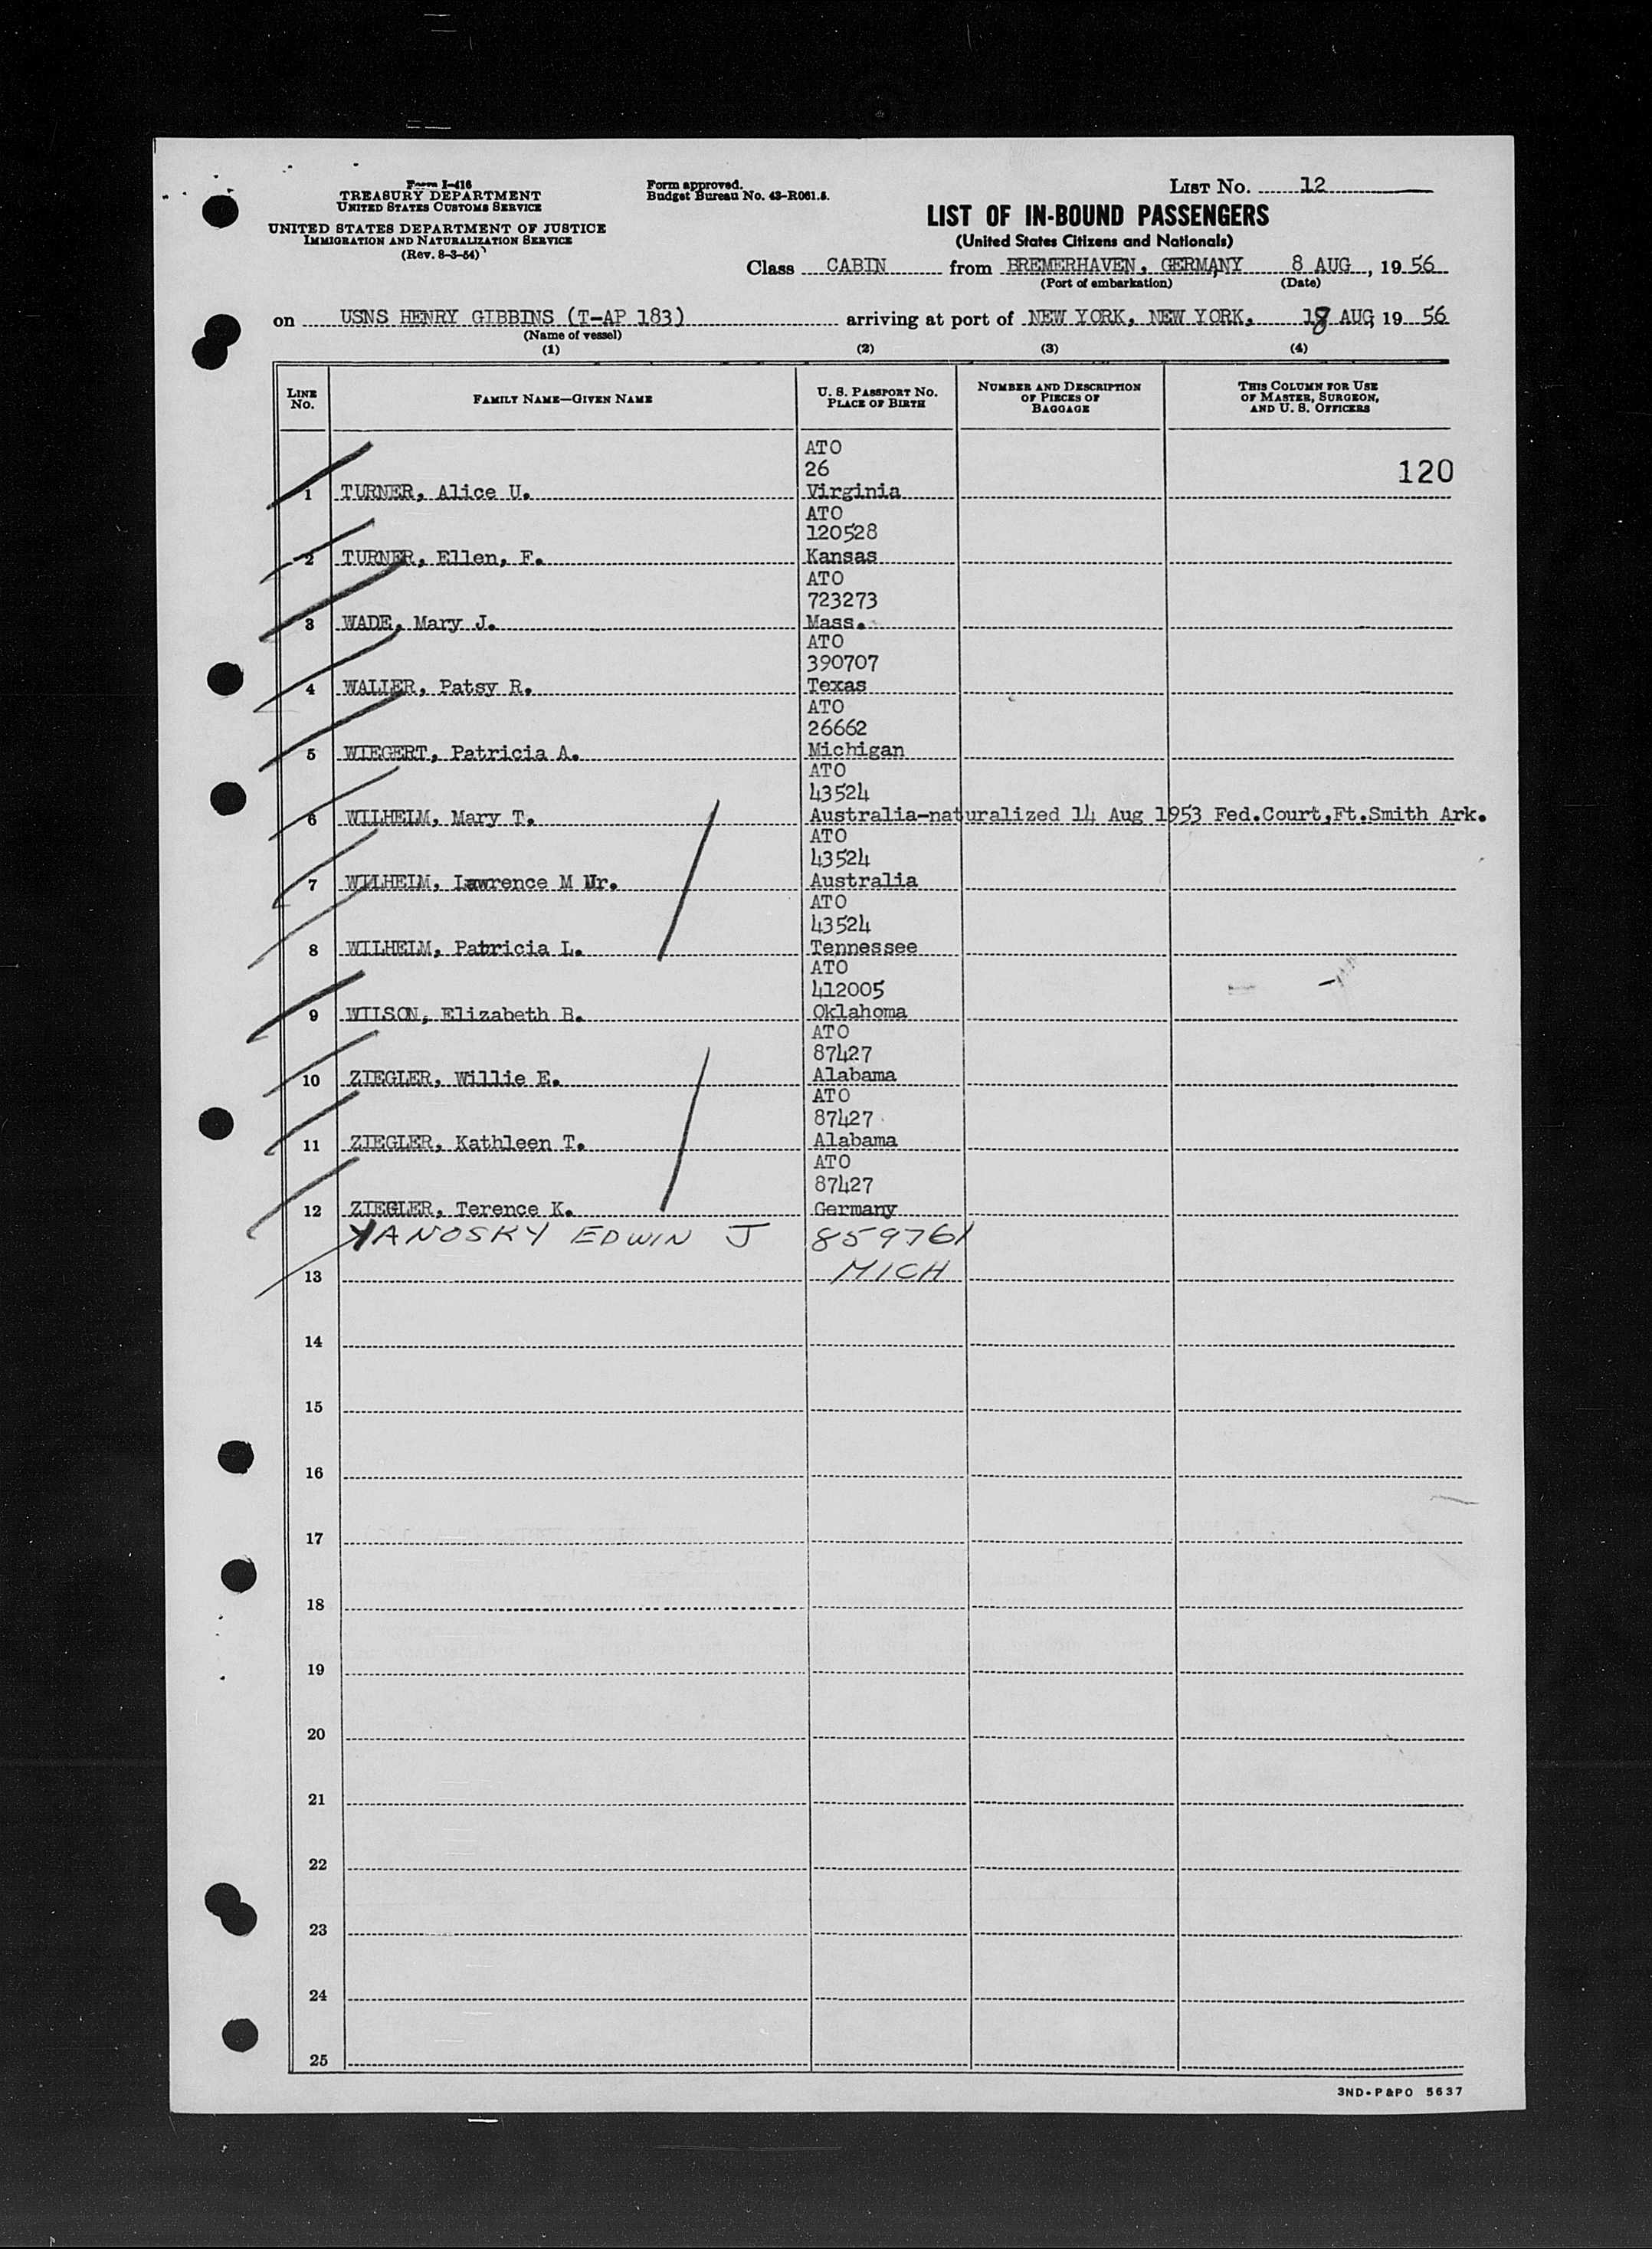 Form I-416
TREASURY DEPARTMENT
UNITED STATES CUSTOMS SERVICE
UNITED STATES DEPARTMENT OF JUSTICE
IMMIGRATION AND NATURALIZATION SERVICE
(Rev. 8-3-54)
Form approved.
Budget Bureau No. 43-R061.5.
LIST No. 12
LIST OF IN-BOUND PASSENGERS
(United States Citizens and Nationals)
Class CABIN from BREMERHAVEN, GERMANY 8 AUG, 1956
(Port of embarkation) (Date)
on USNS HENRY GIBBINS (T-AP 183) arriving at port of NEW YORK, NEW YORK, 18 AUG 1956
(Name of vessel)
(1) (2) (3) (4)
LINE No.
FAMILY NAME—GIVEN NAME
U. S. PASSPORT No.
PLACE OF BIRTH
NUMBER AND DESCRIPTION
OF PIECES OF
BAGGAGE
THIS COLUMN FOR USE
OF MASTER, SURGEON,
AND U. S. OFFICERS
ATO
26
120
1 TURNER, Alice U. Virginia
ATO
120528
2 TURNER, Ellen, F. Kansas
ATO
723273
3 WADE, Mary J. Mass.
ATO
390707
4 WALLER, Patsy R. Texas
ATO
26662
5 WIEGERT, Patricia A. Michigan
ATO
43524
6 WILHELM, Mary T. Australia-naturalized 14 Aug 1953 Fed.Court,Ft.Smith Ark.
ATO
43524
7 WILHELM, Lawrence M Jr. Australia
ATO
43524
8 WILHELM, Patricia L. Tennessee
ATO
412005
9 WILSON, Elizabeth B. Oklahoma
ATO
87427
10 ZIEGLER, Willie E. Alabama
ATO
87427
11 ZIEGLER, Kathleen T. Alabama
ATO
87427
12 ZIEGLER, Terence K. Germany
YANOSKY EDWIN J 859761
13 MICH
14
15
16
17
18
19
20
21
22
23
24
25
3ND-P&PO 5637